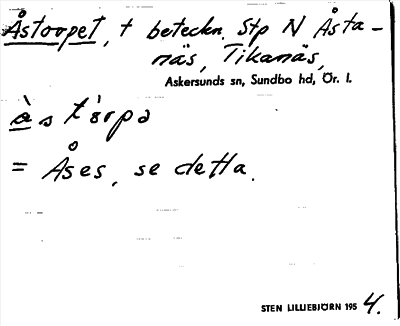 Åstorpet, † beteckn. Stp N Åsta-
näs, Tikanäs,
Askersunds sn, Sundbo hd, Ör. l.
à s tòrpə
= Åses, se detta.
STEN LILLIEBJÖRN 195 4.